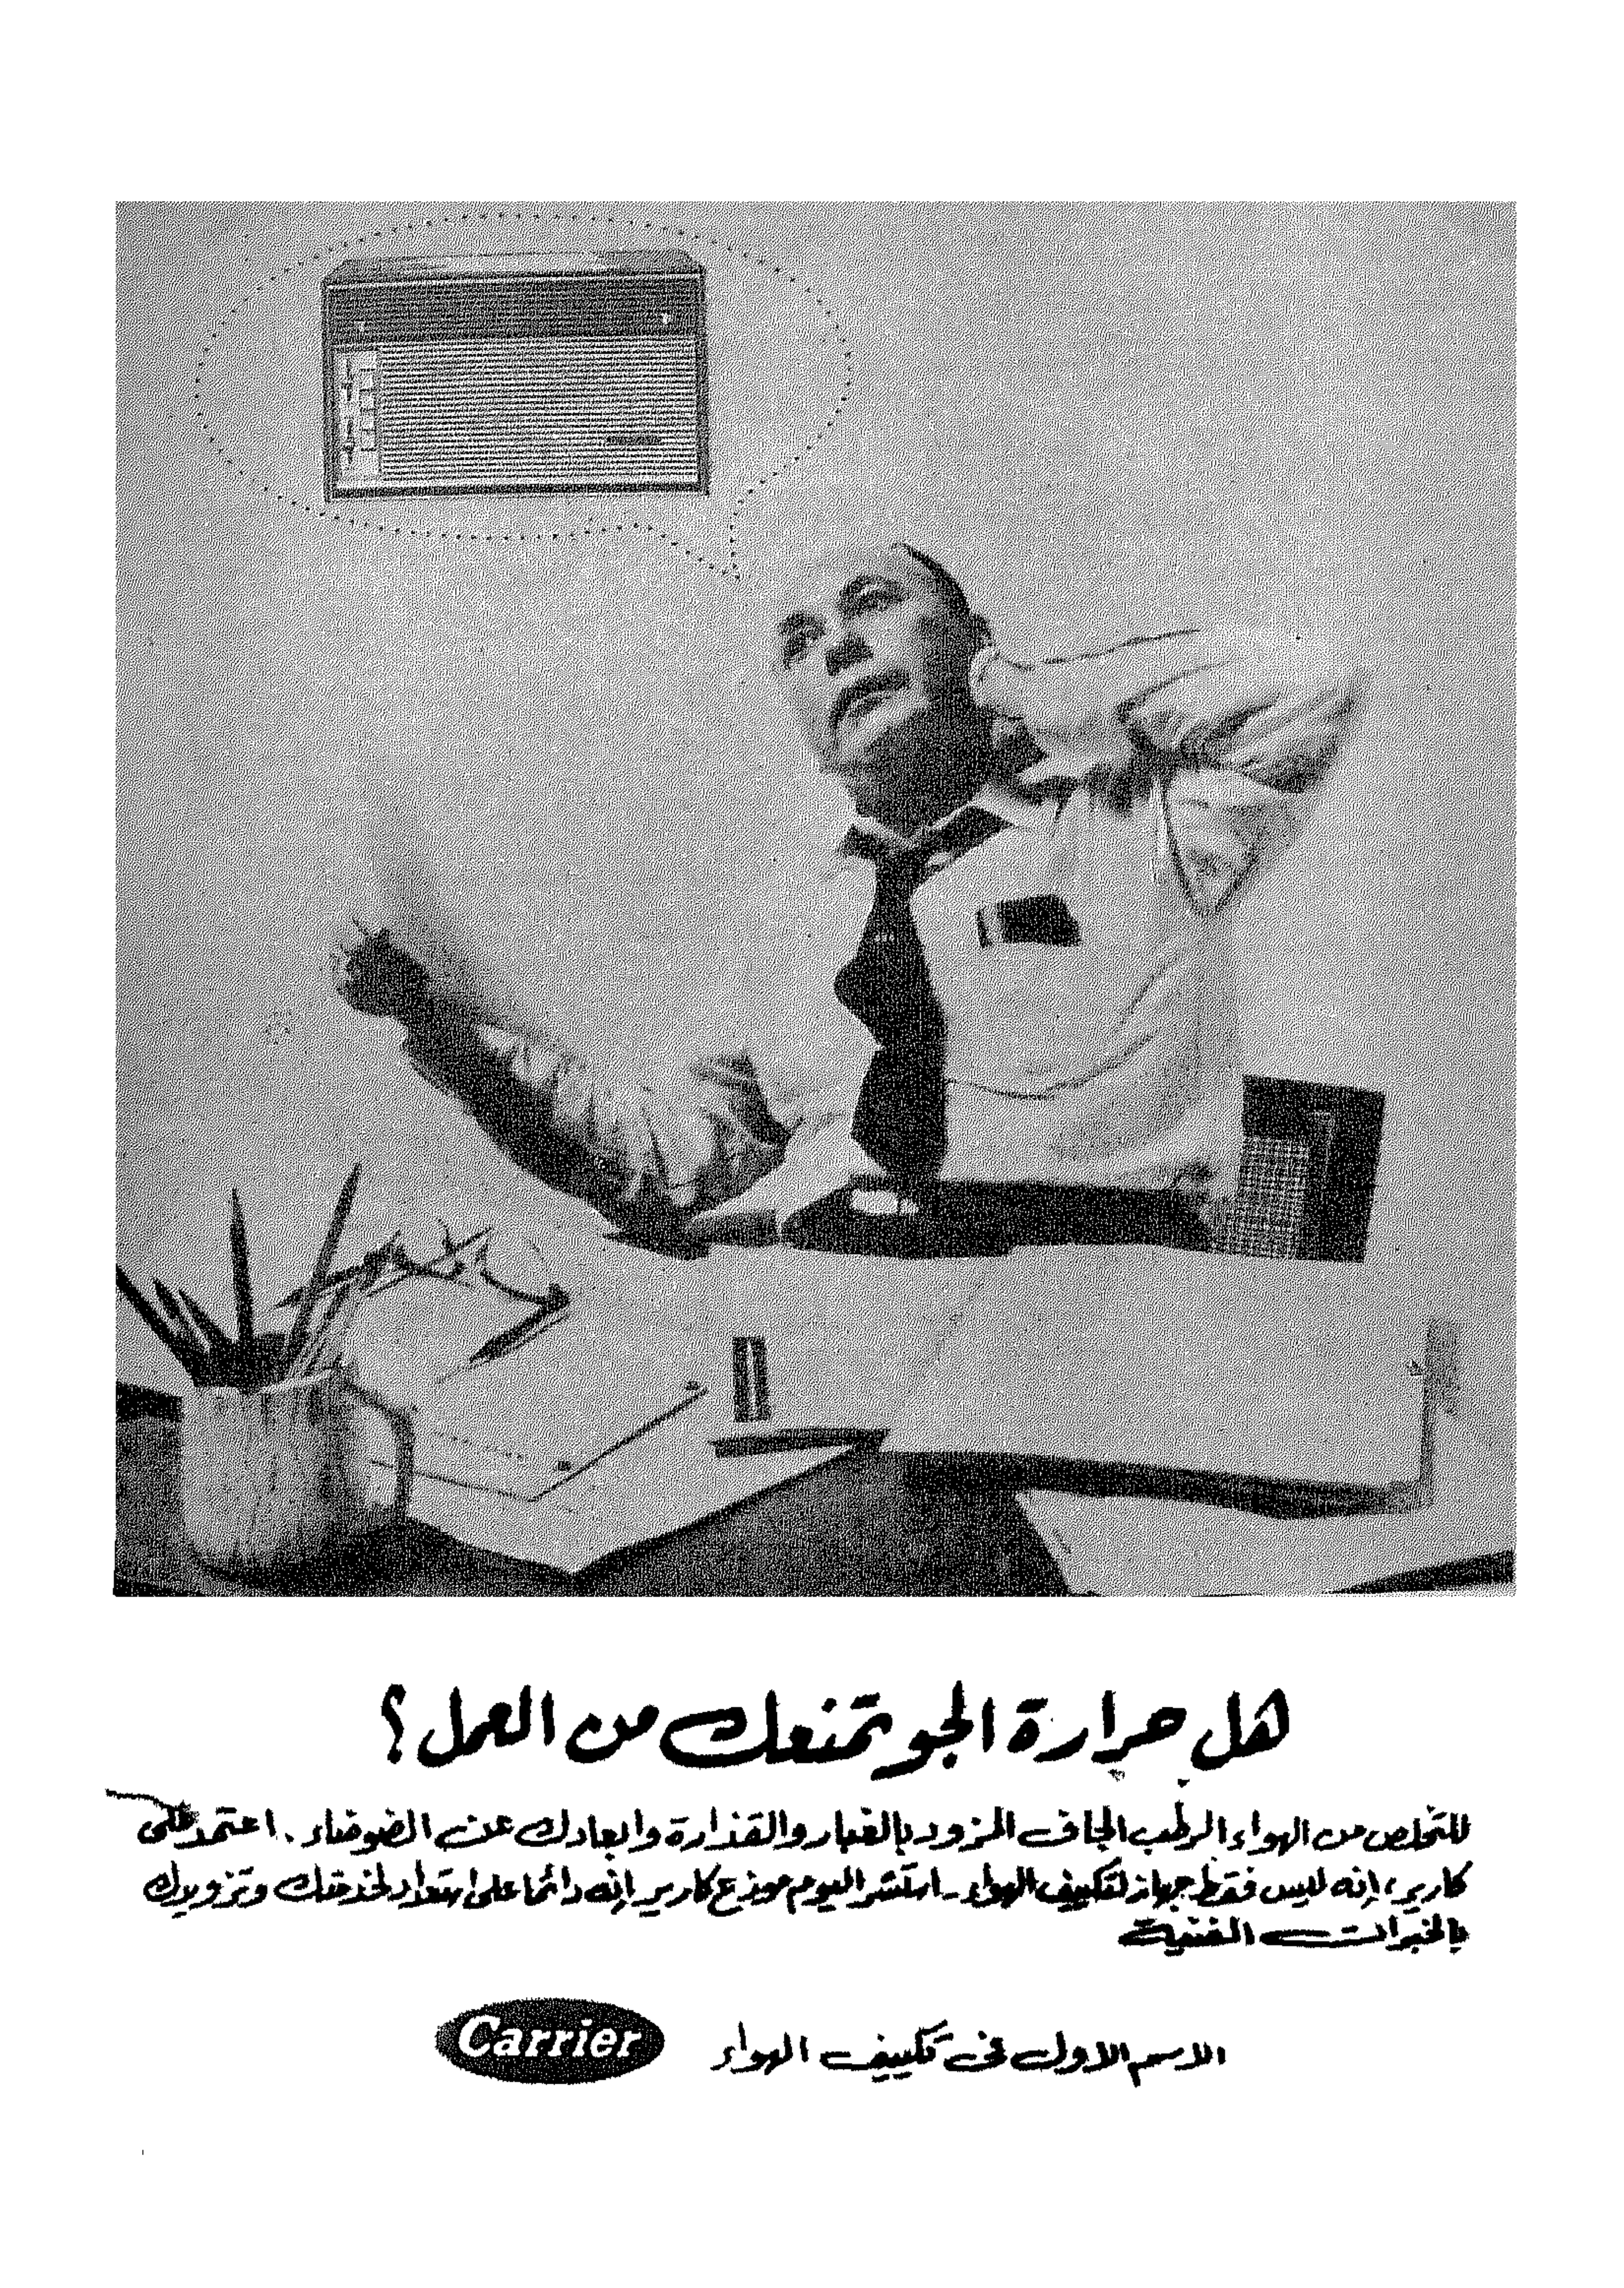 هل حرارة الجو تمنعك من العمل؟
للتخلص من الهواء الرطب الجاف المزود بالغبار والقذارة وابعادك عن الضوضاء. اعتمد على
كارير، إنه ليس فقط جهاز لتكييف الهواء - استشر اليوم موزع كارير إنه دائما على استعداد لخدمتك وتزويدك
بالخبرات الفنية
الاسم الاول فى تكييف الهواء
Carrier